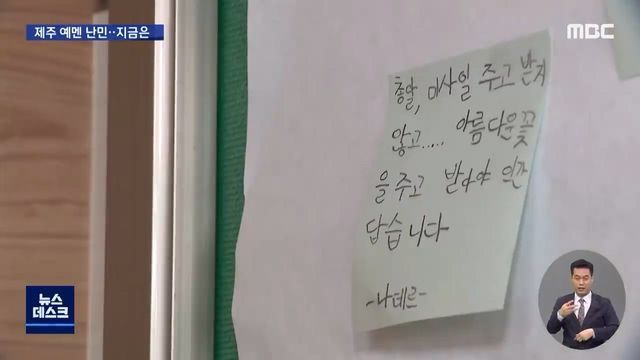 제주 예멘 난민··지금은
MBC
총알, 미사일 주고 받지
않고..... 아름다운 꽃
을 주고 받아야 인간
답습니다
-나데르-
뉴스
데스크